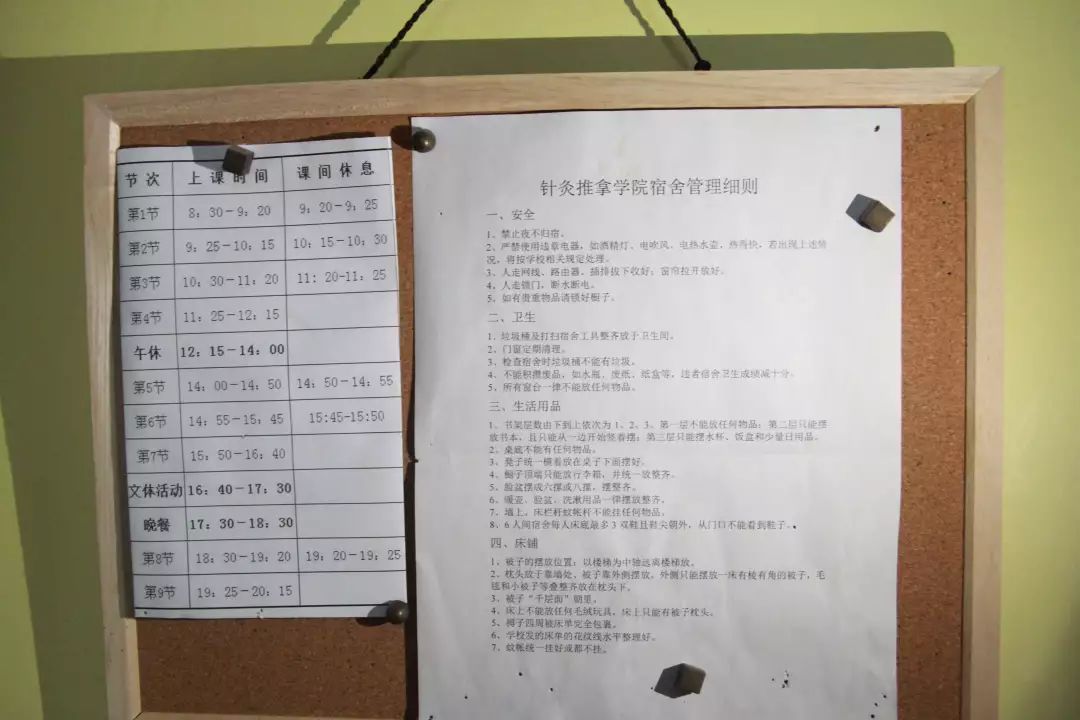 节次 上课时间 课间休息
第1节 8：30－9：20 9：20－9：25
第2节 9：25－10：15 10：15－10：30
第3节 10：30－11：20 11：20－11：25
第4节 11：25－12：15
午休 12：15－14：00
第5节 14：00－14：50 14：50－14：55
第6节 14：55－15：45 15:45-15:50
第7节 15：50－16：40
文体活动 16：40－17：30
晚餐 17：30－18：30
第8节 18：30－19：20 19：20－19：25
第9节 19：25－20：15
针灸推拿学院宿舍管理细则
一、安全
1、禁止夜不归宿。
2、严禁使用违章电器，如酒精灯、电吹风、电热水壶，热得快，若出现上述情
况，将按学校相关规定处理。
3、人走网线、路由器、插排拔下收好；窗帘拉开放好。
4、人走锁门，断水断电。
5、如有贵重物品请锁好橱子。
二、卫生
1、垃圾桶及打扫宿舍工具整齐放于卫生间。
2、门窗定期清理。
3、检查宿舍时垃圾桶不能有垃圾。
4、不能积攒废品，如水瓶、废纸、纸盒等，违者宿舍卫生成绩减十分。
5、所有窗台一律不能放任何物品。
三、生活用品
1、书架层数由下到上依次为 1、2、3。第一层不能放任何物品；第二层只能摆
放书本，且只能从一边开始竖着摆；第三层只能摆水杯、饭盒和少量日用品。
2、桌底不能有任何物品。
3、凳子统一横着放在桌子下面摆好。
4、橱子顶端只能放行李箱，并统一放整齐。
5、脸盆摆成六摞或八摞，摆整齐。
6、暖壶、脸盆、洗漱用品一律摆放整齐。
7、墙上、床栏杆蚊帐杆不能挂任何物品。
8、6 人间宿舍每人床底最多 3 双鞋且鞋尖朝外，从门口不能看到鞋子。
四、床铺
1、被子的摆放位置：以楼梯为中轴远离楼梯放。
2、枕头放于靠墙处、被子靠外侧摆放。外侧只能摆放一床有棱有角的被子，毛
毯和小被子等叠整齐放在枕头下。
3、被子“千层面”朝里。
4、床上不能放任何毛绒玩具，床上只能有被子枕头。
5、褥子四周被床单完全包裹。
6、学校发的床单的花纹线水平整理好。
7、蚊帐统一挂好或都不挂。